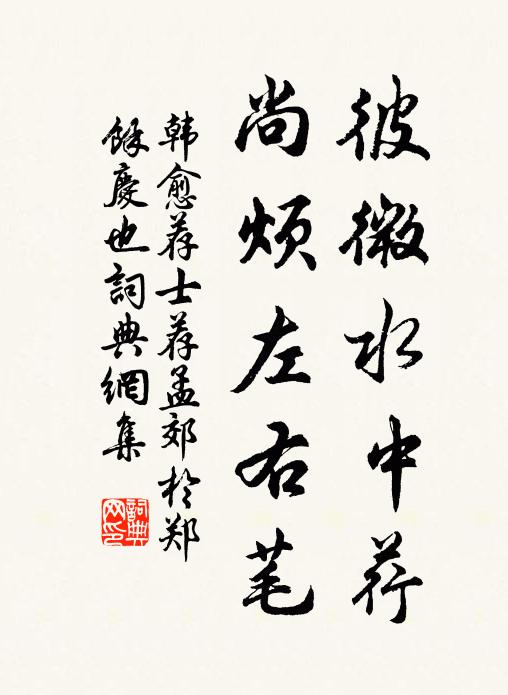 彼微水中荇
尚烦左右芼
韩愈荐士荐孟郊於郑
馀慶也詞典網集
詞典网印